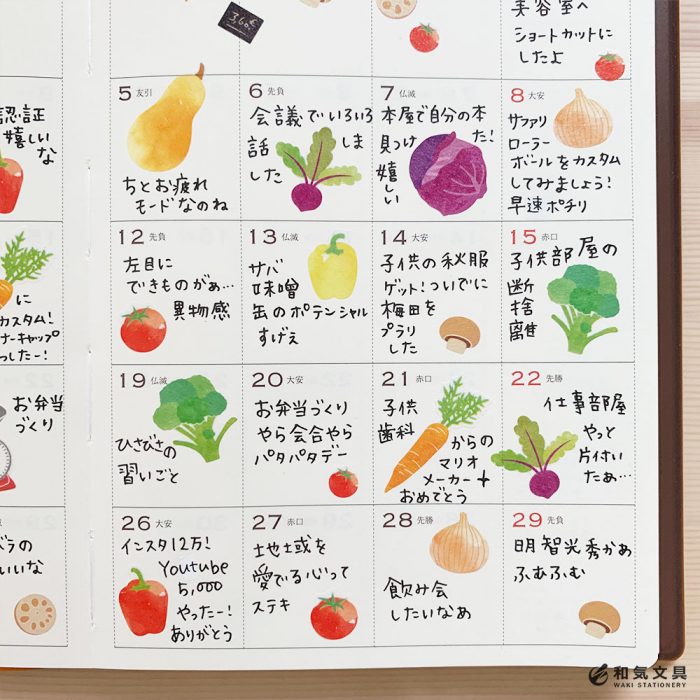 美容室へ
ショートカットに
したよ
360€
認証
嬉しい
な
5 友引
ちとお疲れ
モードなのね
6 先負
会議でいろいろ
話しま
した
7 仏滅
本屋で自分の本
見っけた!
嬉しい
8 大安
サファリ
ローラー
ボールをカスタム
してみましょう!
早速ポチリ
に
カスタム!
ナーキャップ
っしたー!
12 先負
左目に
できものがぁ…
異物感
13 仏滅
サバ
味噌
缶のポテンシャル
すげえ
14 大安
子供の秋服
ゲット!ついでに
梅田を
プラリ
した
15 赤口
子供部屋の
断捨離
お弁当
づくり
19 仏滅
ひさびさの
習いごと
20 大安
お弁当づくり
やら会合やら
パタパタデー
21 赤口
子供
歯科
からの
マリオ
メーカー+
おめでとう
22 先勝
仕事部屋
やっと
片付い
たぁ…
ラの
いいな
26 大安
インスタ12万!
Youtube
5,000
やったー!
ありがとう
27 赤口
土地土或を
愛でる心って
ステキ
28 先勝
飲み会
したいなぁ
29 先負
明智光秀かぁ
ふむふむ
和気文具
WAKI STATIONERY